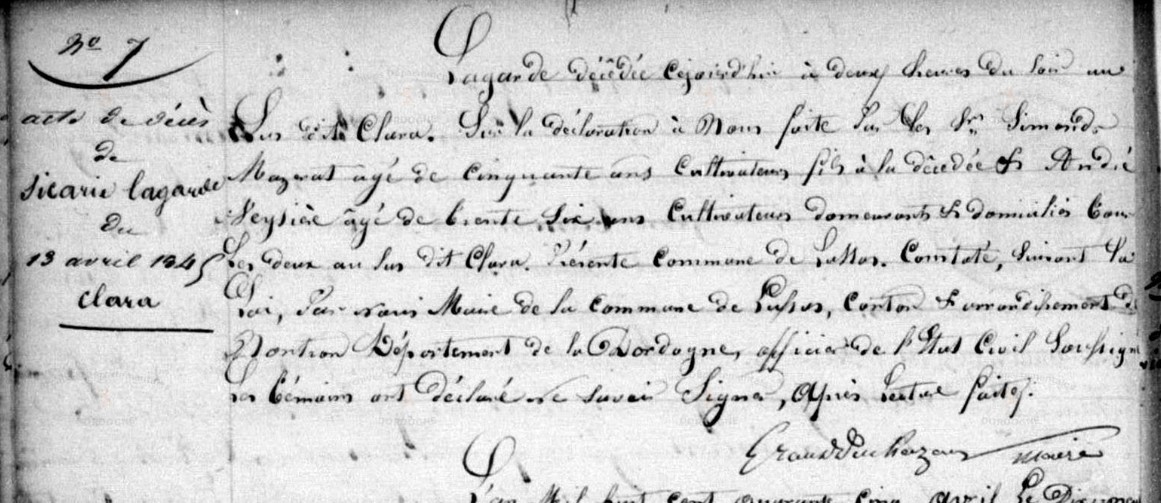 No 7
acte de décès
de
Sicarie Lagarde
du
13 avril 1845
Clara
Lagarde décédée cejourd'hui à deux heures du soir au
Sus dit Clara. Sur la déclaration à Nous faite Par les Srs Simond
Mazerat agé de cinquante ans Cultivateur fils à la décédée & André
âgé de trente Six ans Cultivateurs demeurants & domiciliés tous
Les deux au Sus dit Clara. Présente Commune de Lussas. Constaté, Suivant la
Loi, Par nous Maire de la Commune de Lussas, Canton & arrondissement de
Nontron Département de la Dordogne, officier de l'Etat Civil Soussigné
Les témoins ont déclaré ne Savoir Signer, Après Lecture faite.
maire
L'an Mil huit cent quarante cinq avril Le